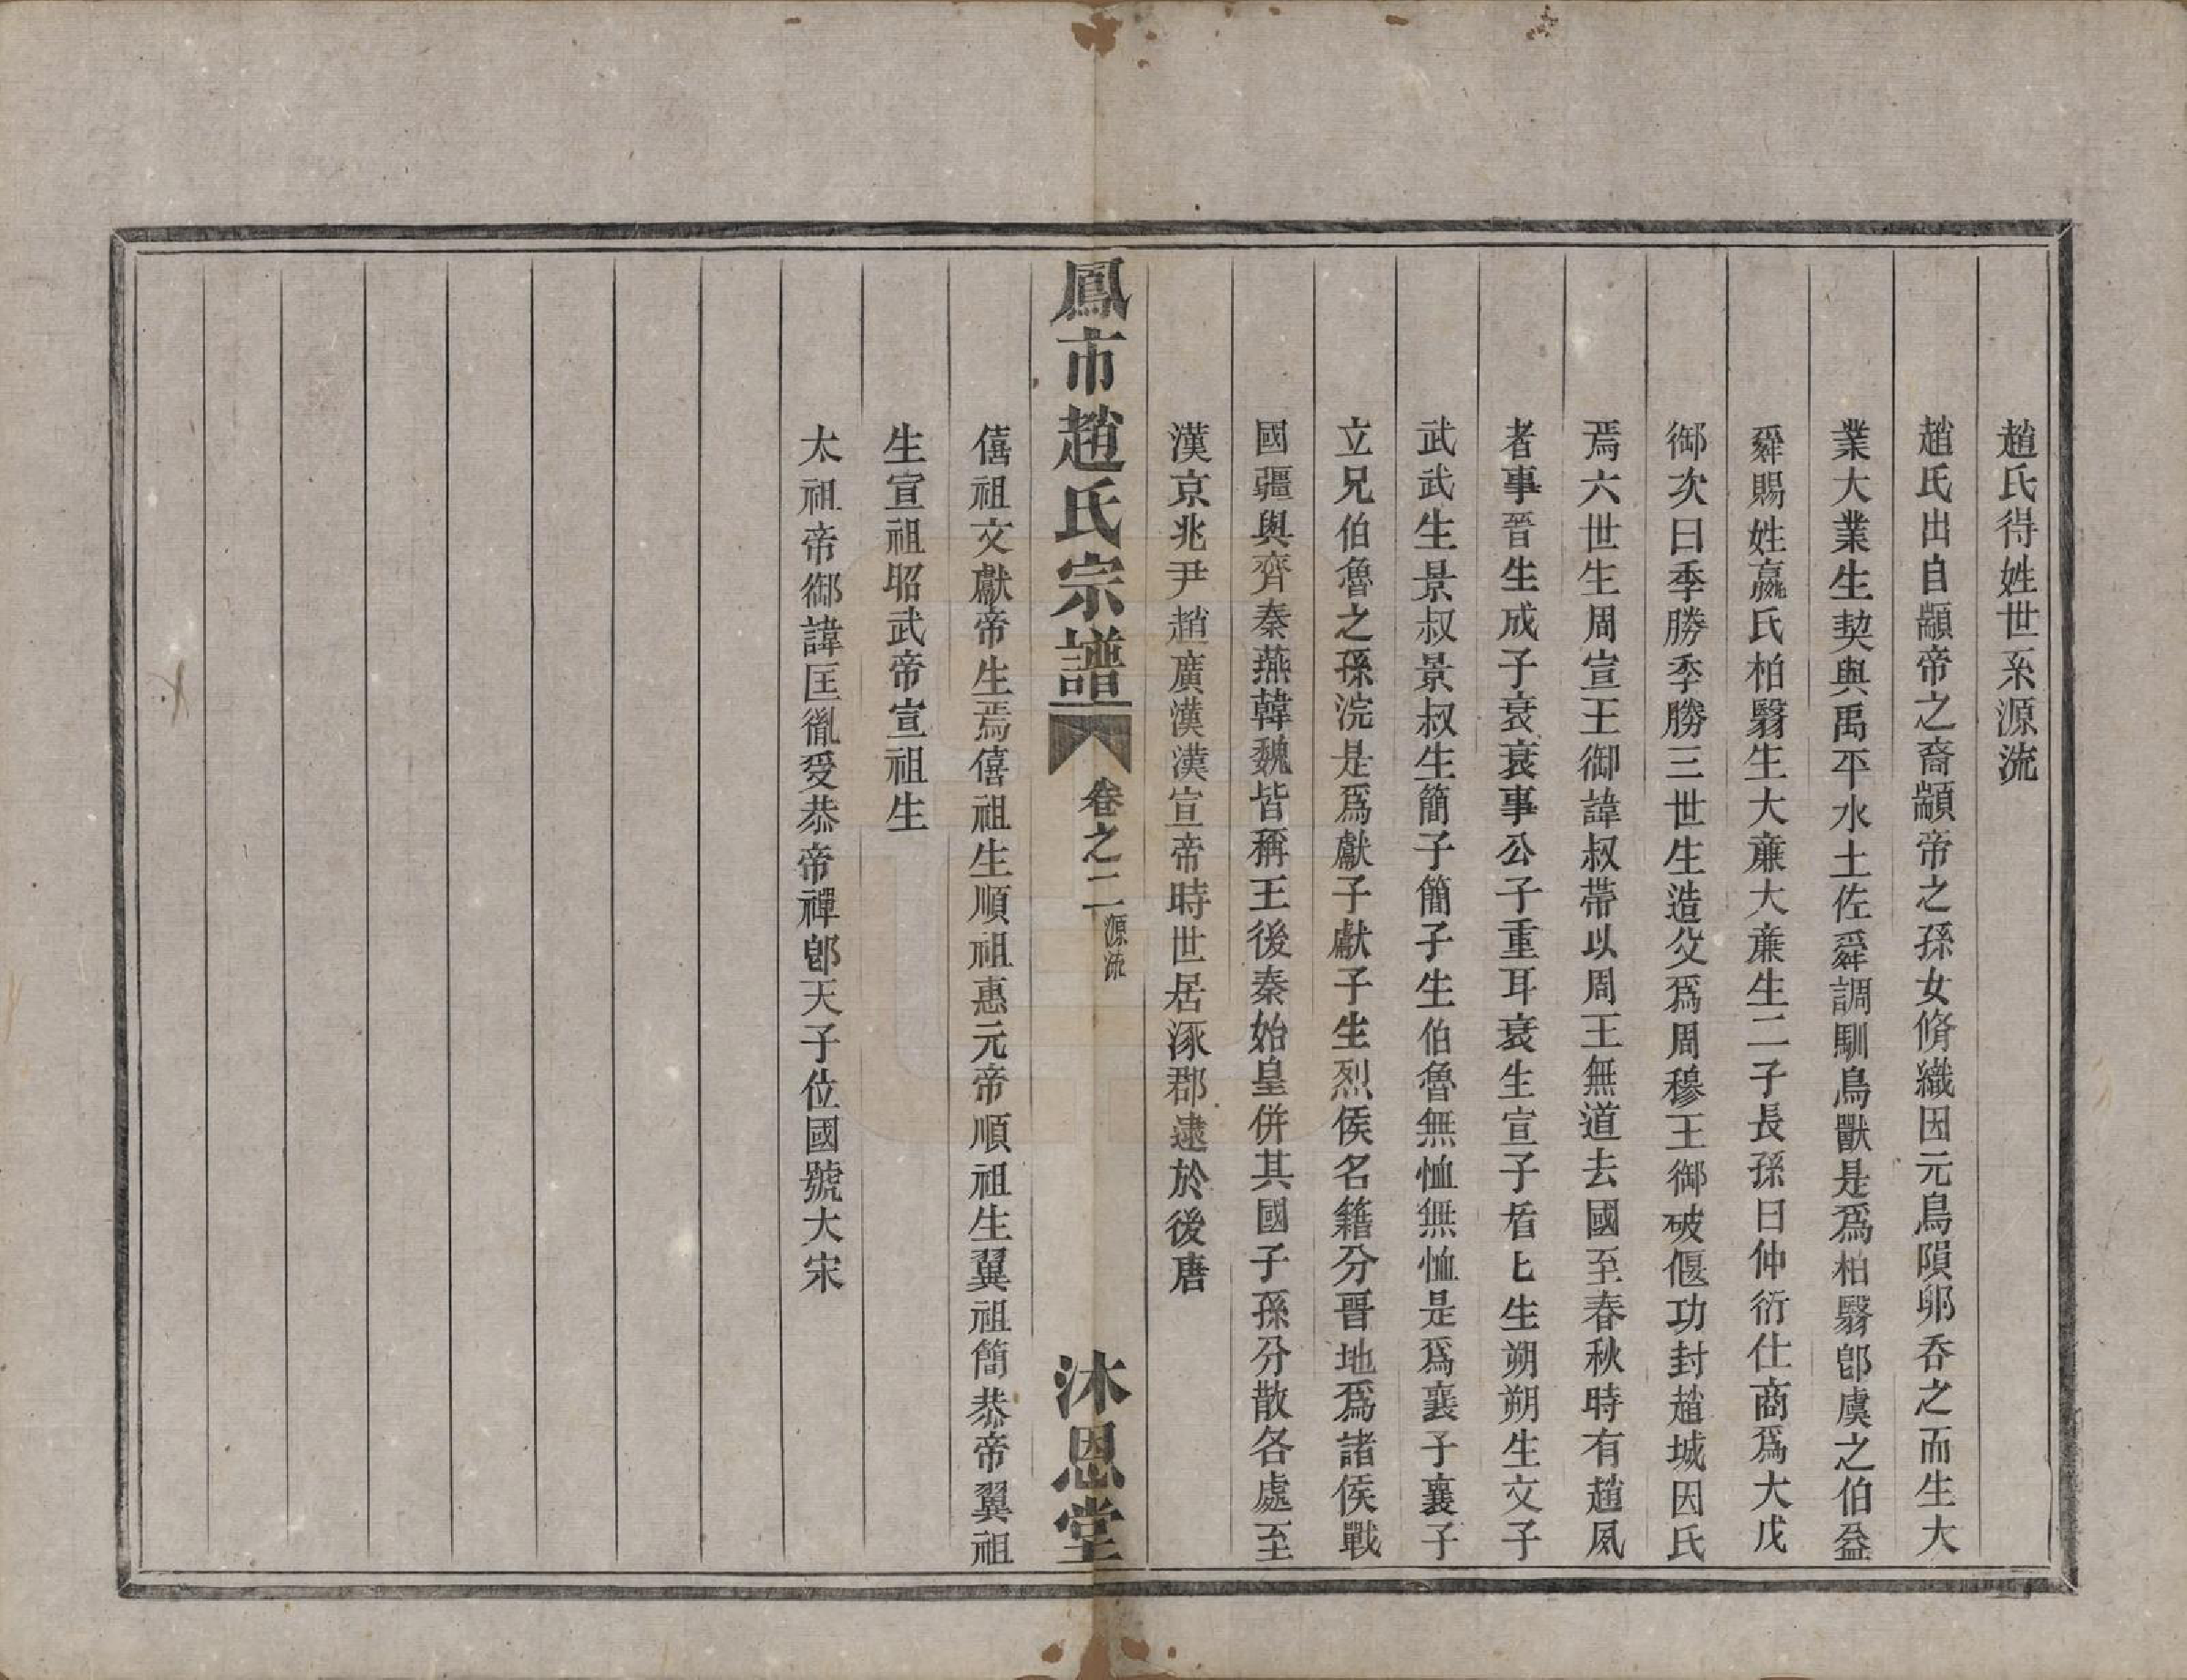 趙氏得姓世系源流
趙氏出自顓帝之裔顓帝之孫女脩織因元鳥隕卵吞之而生大
業大業生契與禹平水土佐舜調馴鳥獸是爲柏翳卽虞之伯益
舜賜姓嬴氏柏翳生大亷大亷生二子長孫曰仲衍仕商爲大戊
御次曰季勝季勝三世生造父爲周穆王御破偃功封趙城因氏
焉六世生周宣王御諱叔帶以周王無道去國至春秋時有趙夙
者事晉生成子衰衰事公子重耳衰生宣子盾匕生朔朔生文子
武武生景叔景叔生簡子簡子生伯魯無恤無恤是爲襄子襄子
立兄伯魯之孫浣是爲獻子獻子生烈侯名籍分晋地爲諸侯戰
國疆與齊秦燕韓魏皆稱王後秦始皇併其國子孫分散各處至
漢京兆尹趙廣漢漢宣帝時世居涿郡逮於後唐
鳳市趙氏宗譜 卷之二 源流 沐恩堂
僖祖文獻帝生焉僖祖生順祖惠元帝順祖生翼祖簡恭帝翼祖
生宣祖昭武帝宣祖生
太祖帝御諱匡胤受恭帝禪卽天子位國號大宋